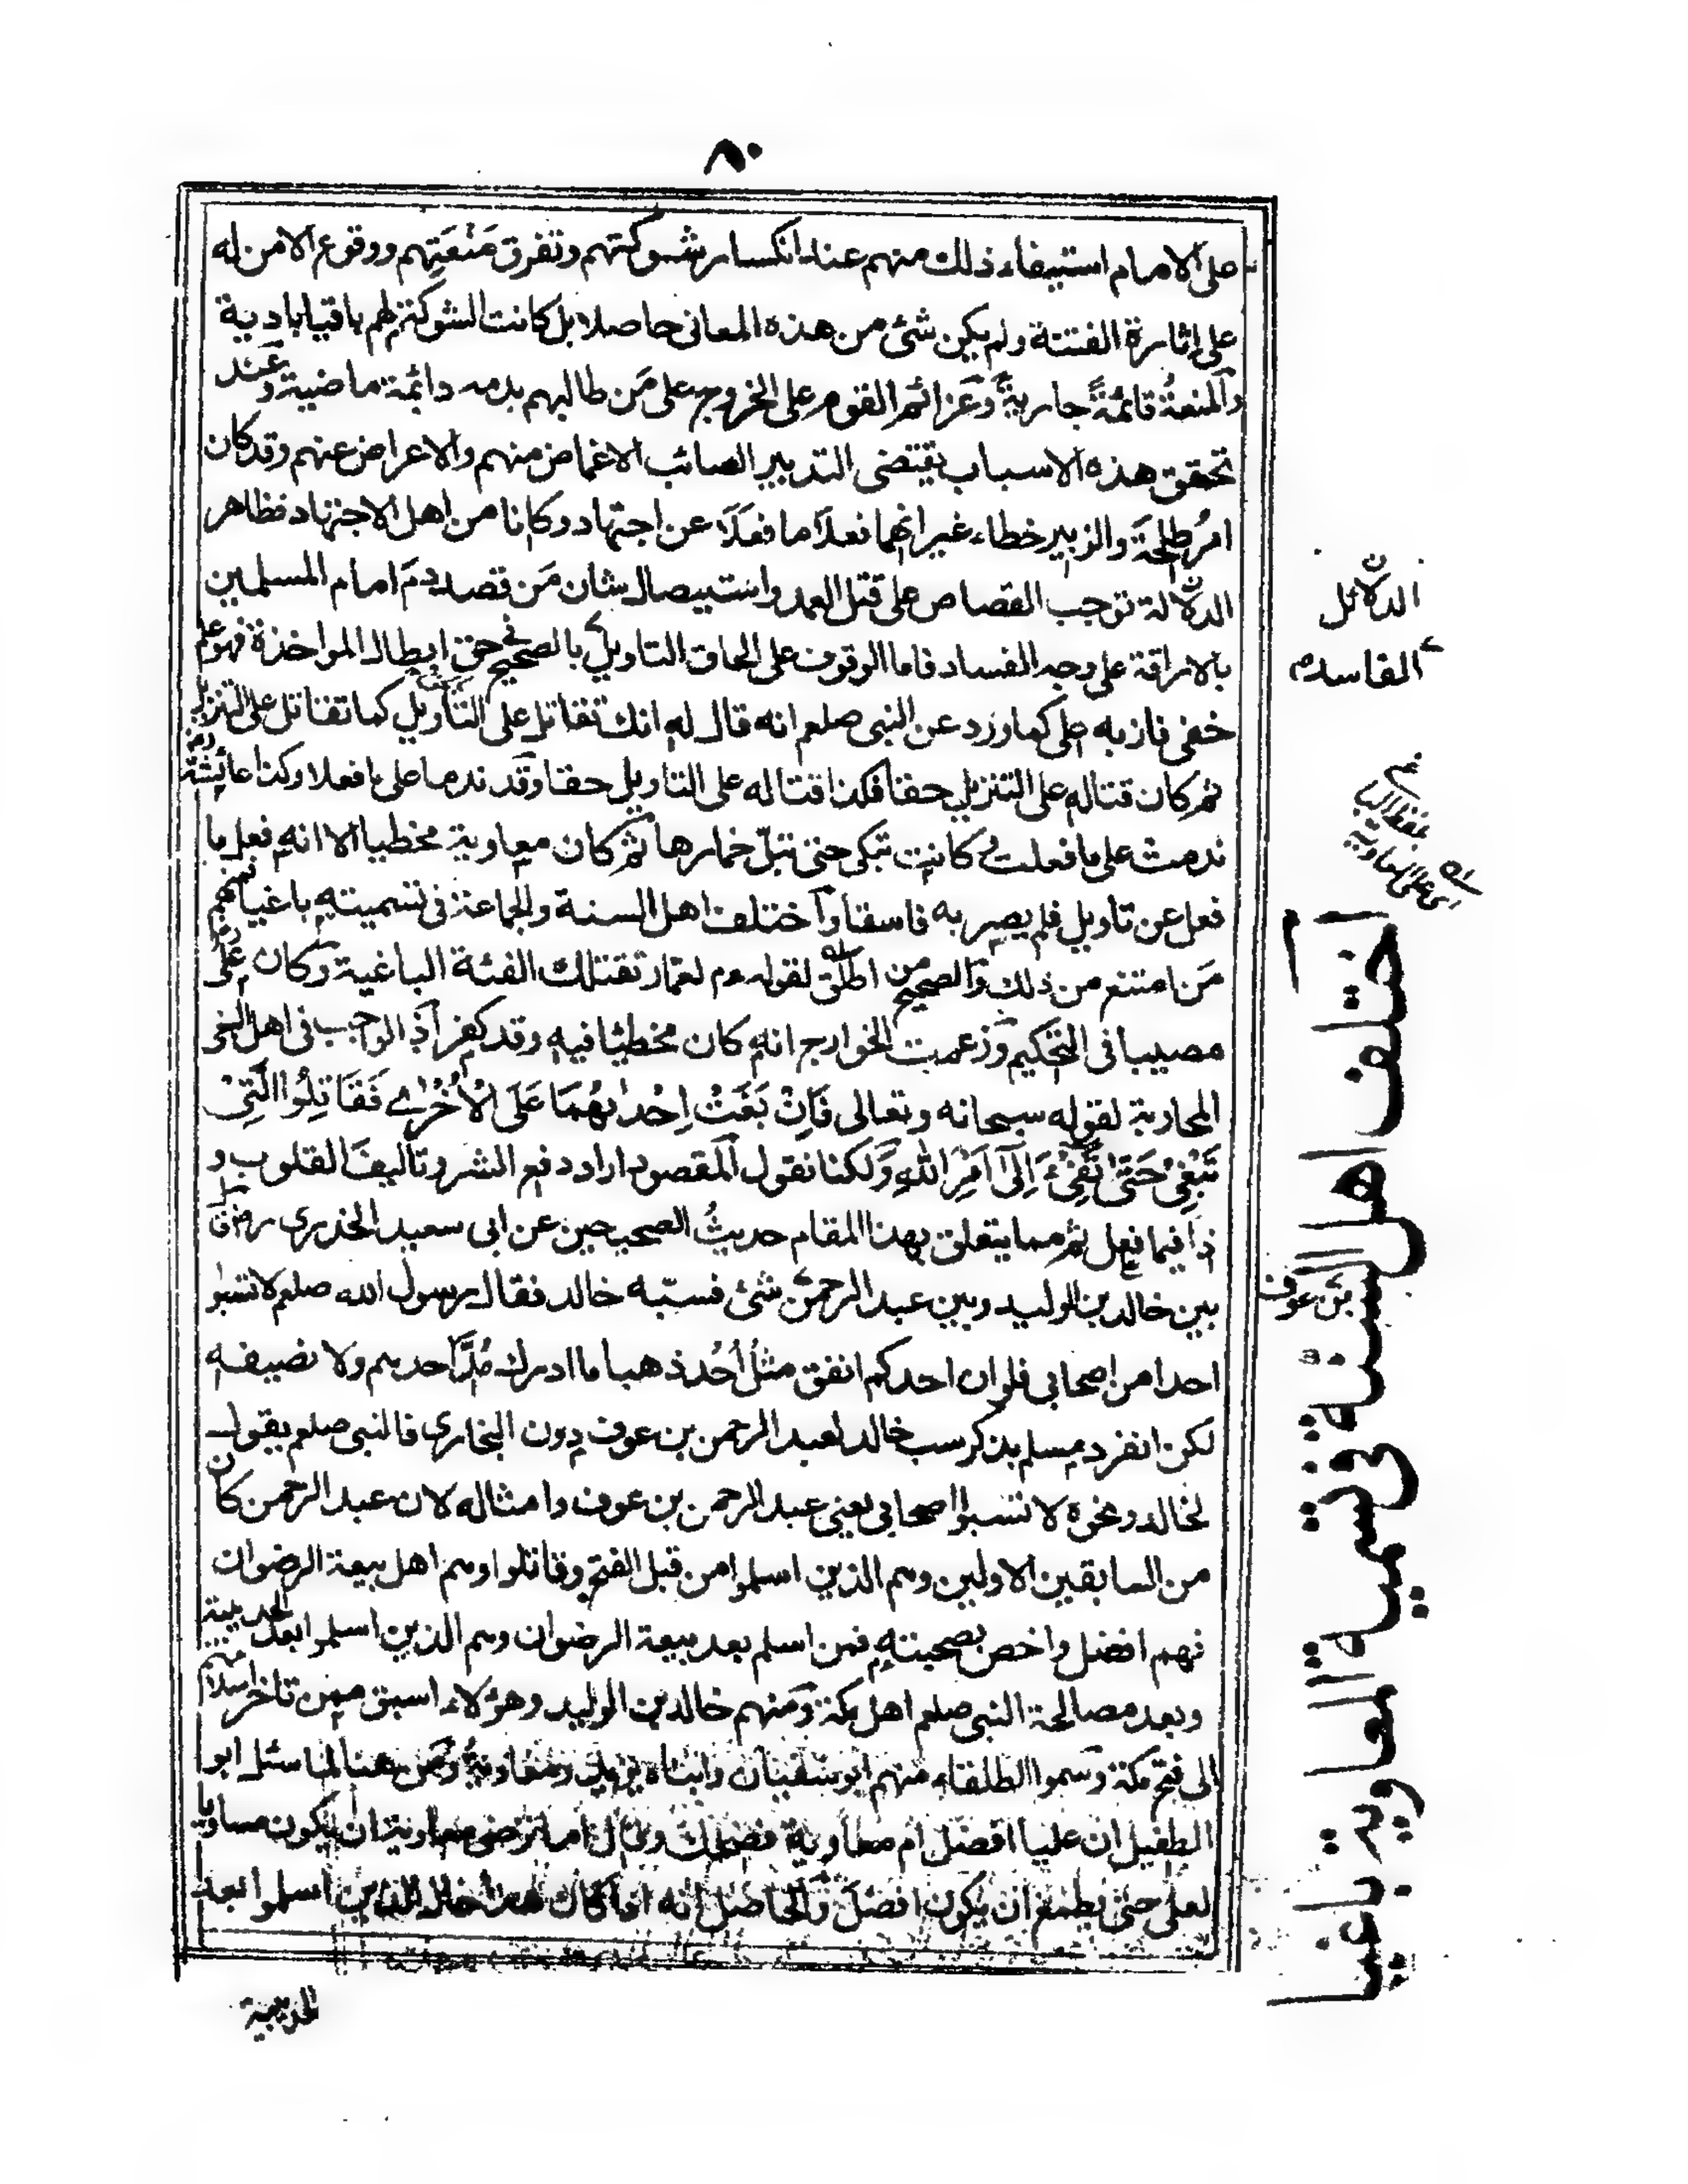 ٨٠
على الامام استيفاء ذلك منهم عند انكسار شوكتهم وتفرق مَنْعَتِهم ووقوع الامن له
على اثارة الفتنة ولم يكن شئ من هذه المعانى حاصلا بل كانت الشوكة لهم باقيا بادية
والمنعةُ قائمةً جاريةً وعَزائم القوم على الخروج على مَن طالبهم بدمه دائمة ماضية وعند
تحقق هذه الاسباب يقتضى التدبير الصائب الاغماض منهم والاعراض عنهم وقد كان
امرُ طلحةَ والزبير خطاء غير انهما فعلَا ما فعلَا عن اجتهاد وكانا من اهل الاجتهاد فظاهر
الدلالة توجب القصاص على قتل العمد واستيصال شان مَن قصد دمَ امام المسلمين
بالاراقة على وجه الفساد فاما الوقوف على الحاق التاويل بالصحيح فى حق ابطال المواخذة فهو علم
خفى فاز به على كما ورد عن النبى صلعم انه قال له انك تقاتل على التأويل كما تقاتل على التنزيل
ثم كان قتاله على التنزيل حقا فكذا قتاله على التاويل حقا وقد ندما على ما فعلا وكذا عائشة رض
ندمت على ما فعلت و كانت تبكى حتى تبلّ خمارها ثم كان معاوية مخطيا الا انه فعل ما
فعل عن تاويل فلم يصر به فاسقا واختلف اهل السنة والجماعة فى تسميته باغيا فمنهم
مَن امتنع من ذلك والصحيح من اطلق لقوله عم لعمار تقتلك الفئة الباغية وكان على رض
مصيبا فى التحكيم وزعمت الخوارج انه كان مخطيئا فيه وقد كفر اذ الواجب فى اهل البغى
المحاربة لقوله سبحانه وتعالى فَاِنْ بَغَتْ اِحْدٰىهُمَا عَلَى الْاُخْرٰى فَقَاتِلُوا الَّتِىْ
تَبْغِىْ حَتّٰى تَفِىْٓءَ اِلٰٓى اَمْرِ اللّٰهِ ولكنا نقول المقصود اراد دفع الشر وتاليفَ القلوب و
ذا فيما فعل ثم مما يتعلق بهذا المقام حديثُ الصحيحين عن ابى سعيد الخدرى رض قال كان
بين خالد بن الوليد وبين عبد الرحمن شئ فسبّه خالد فقال رسول الله صلعم لا تسبوا
احدا من اصحابى فلو ان احدكم انفق مثلُ اُحُد ذهبا ما ادرك مُدَّ احدهم ولا نصيفه
لكن انفرد مسلم بذكر سب خالد لعبد الرحمن بن عوف دون البخارى فالنبى صلعم يقول
لخالد ونحوه لا تسبوا اصحابى يعنى عبد الرحمن بن عوف وامثاله لان عبد الرحمن كان
من السابقين الاولين وهم الذين اسلموا من قبل الفتح وقاتلوا وهم اهل بيعة الرضوان
فهم افضل واخص بصحبته فمن اسلم بعد بيعة الرضوان وهم الذين اسلموا بعد الحديبية
وبعد مصالحة النبى صلعم اهل مكة ومنهم خالد بن الوليد وهؤلاء اسبق ممن تاخر اسلامهم
الى فتح مكة وسموا الطلقاء منهم ابو سفيان وابناه يزيد ومعاوية ومن هنا لما سئل ابو
الطفيل ان عليا افضل ام معاوية فضحك وقال اما ترضى معاوية ان يكون مساويا
لعلى حتى يطمع ان يكون افضل والحاصل انه اذا كان هذا حال الذين اسلموا بعد
الحديبية
الدلائل
الفاسده
بن عوف
اختلف اهل السنة فى تسمية المعاوية باغيا